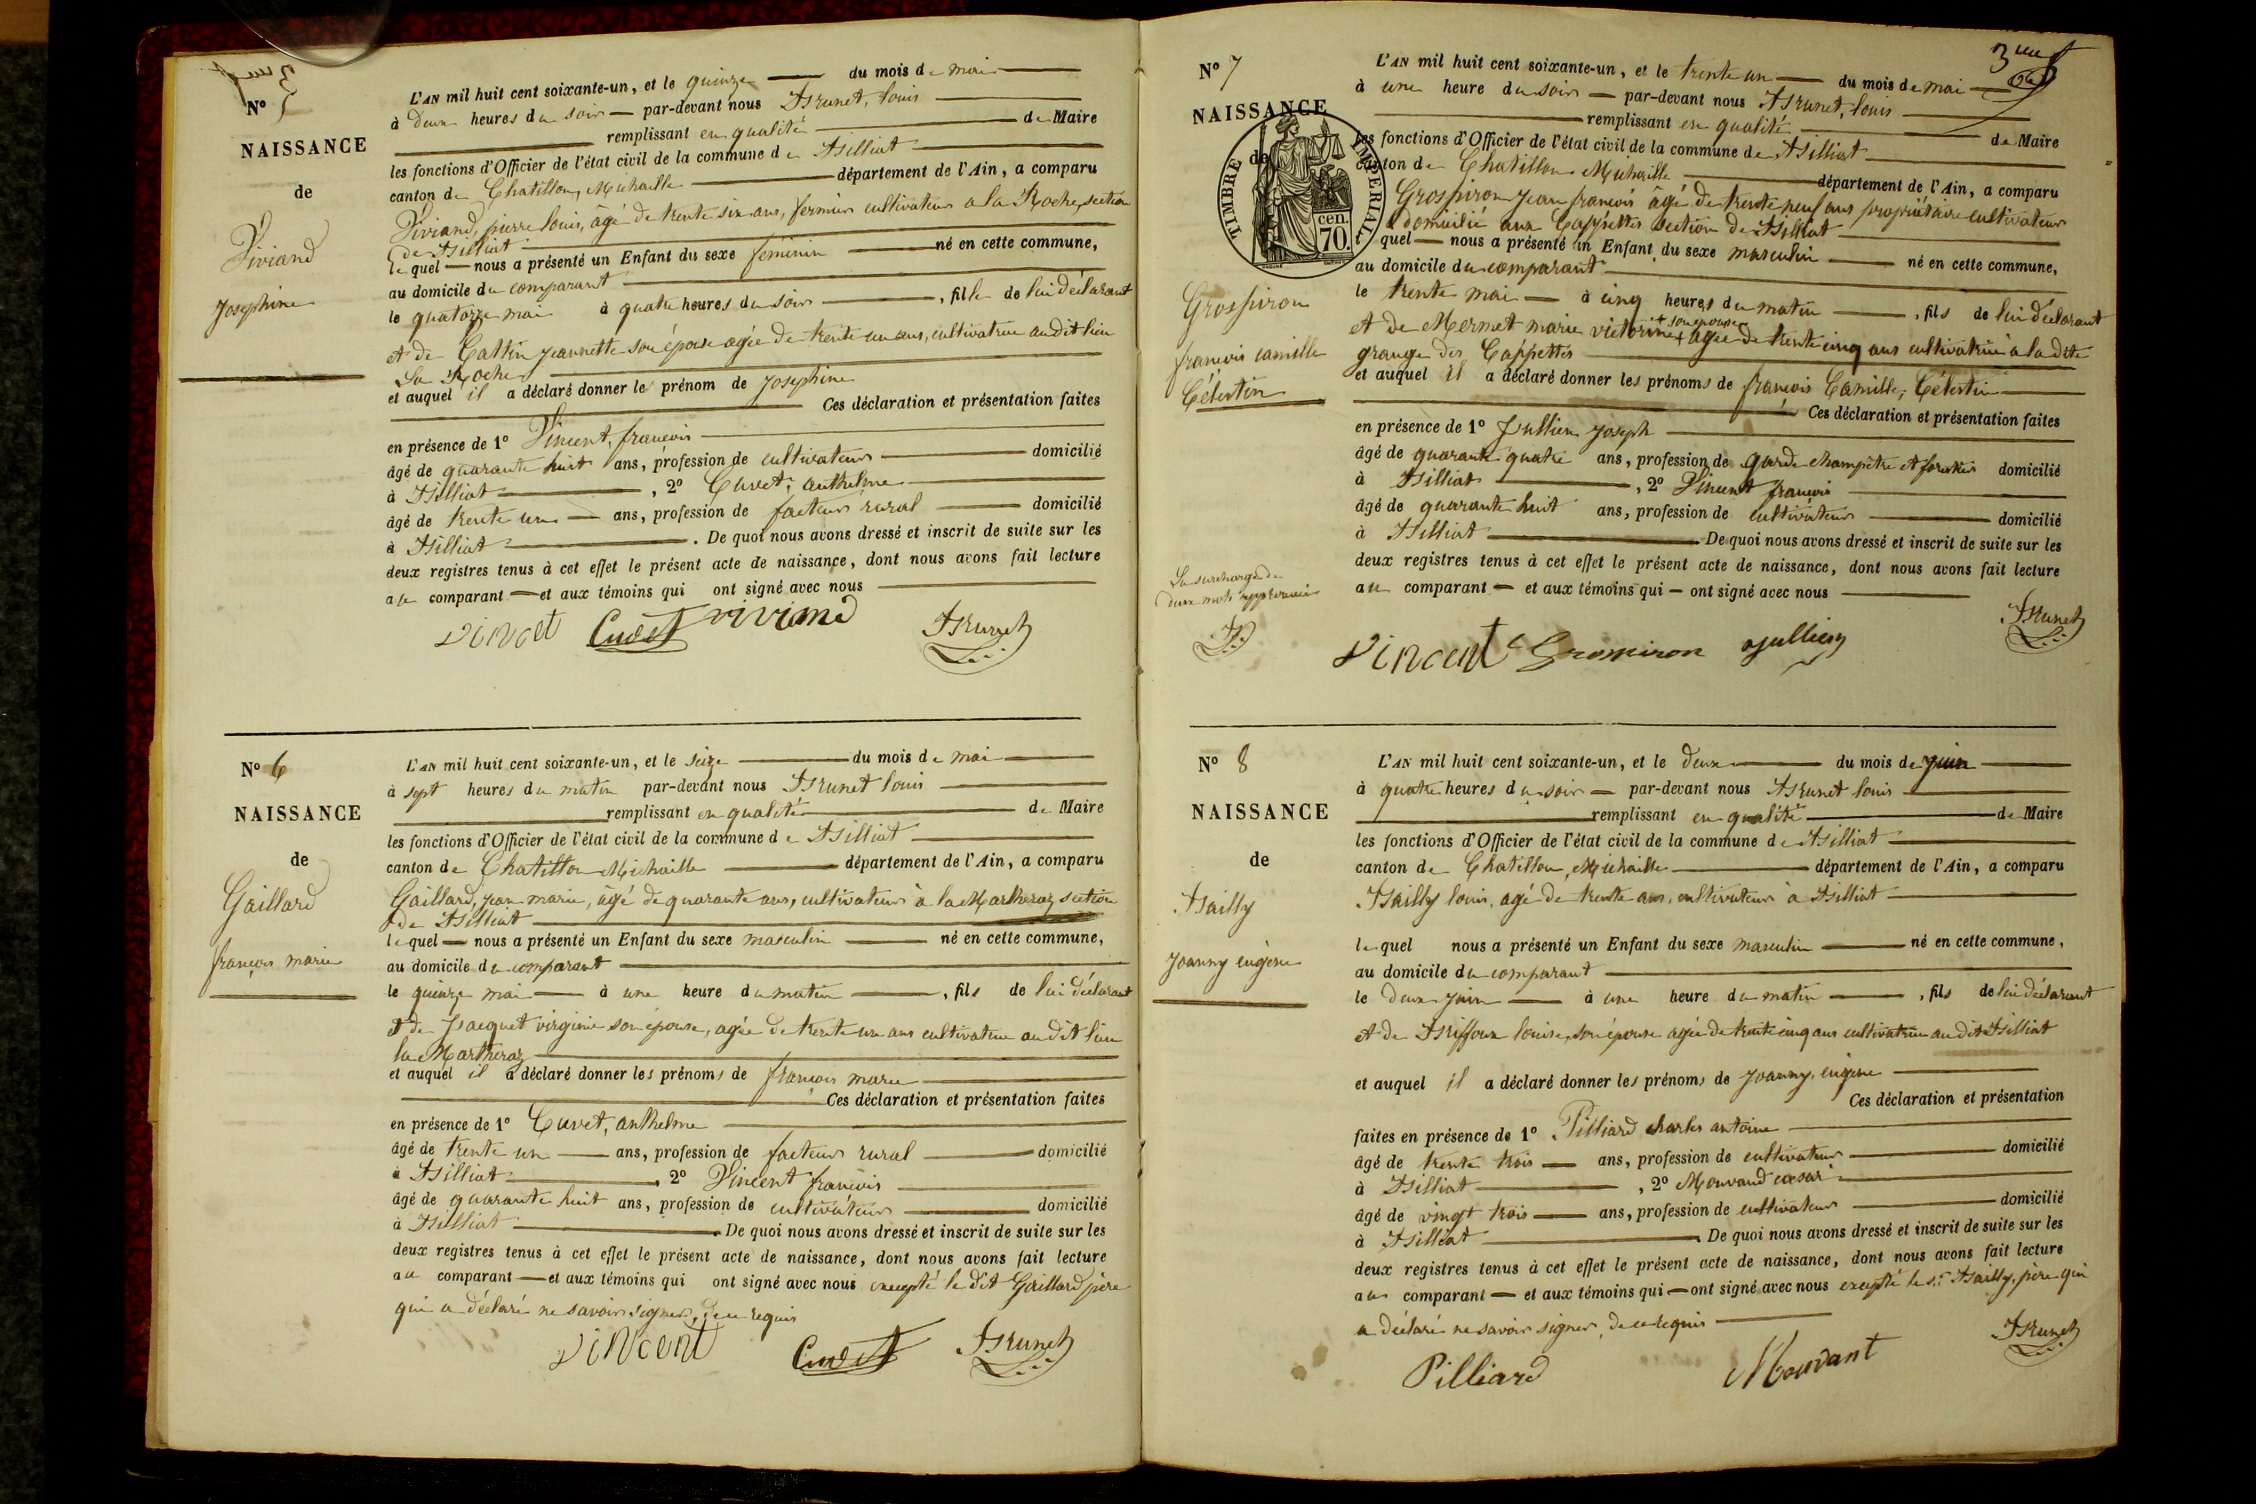 Nº 5
NAISSANCE
de
Viviand
Josephine
L'AN mil huit cent soixante-un, et le quinze du mois de mai
à deux heures du soir par-devant nous Brunet, louis
remplissant en qualité de Maire
les fonctions d'Officier de l'état civil de la commune de Billiat
canton de Chatillon Michaille département de l'Ain, a comparu
Viviand, pierre louis, âgé de trente six ans, fermier cultivateur a la Roche, section
de Billiat
lequel nous a présenté un Enfant du sexe féminin né en cette commune,
au domicile du comparant
le quatorze mai à quatre heures du soir, fille de lui déclarant
et de Cattin Jeannette son épouse agée de trente un ans, cultivatrice au dit lieu
La Roche
et auquel il a déclaré donner le prénom de Josephine
Ces déclaration et présentation faites
en présence de 1º Vincent, francois
âgé de quarante huit ans, profession de cultivateur domicilié
à Billiat, 2º Cuvet, anthelme
âgé de trente un ans, profession de facteur rural domicilié
à Billiat. De quoi nous avons dressé et inscrit de suite sur les
deux registres tenus à cet effet le présent acte de naissance, dont nous avons fait lecture
au comparant et aux témoins qui ont signé avec nous
Vincet Cuvet viviand Brunet
Nº 6
NAISSANCE
de
Gaillard
françois marie
L'AN mil huit cent soixante-un, et le seize du mois de mai
à sept heures du matin par-devant nous Brunet louis
remplissant en qualité de Maire
les fonctions d'Officier de l'état civil de la commune de Billiat
canton de Chatillon Michaille département de l'Ain, a comparu
Gaillard, jean marie, âgé de quarante ans, cultivateur à la Martheraz section
de Billiat
lequel nous a présenté un Enfant du sexe masculin né en cette commune,
au domicile du comparant
le quinze mai à une heure du matin, fils de lui déclarant
et de Jacquet virginie son épouse, agée de trente un ans cultivatrice au dit lieu
la Martheraz
et auquel il a déclaré donner les prénoms de françois marie
Ces déclaration et présentation faites
en présence de 1º Cuvet, anthelme
âgé de trente un ans, profession de facteur rural domicilié
à Billiat, 2º Vincent francois
âgé de quarante huit ans, profession de cultivateur domicilié
à Billiat De quoi nous avons dressé et inscrit de suite sur les
deux registres tenus à cet effet le présent acte de naissance, dont nous avons fait lecture
au comparant et aux témoins qui ont signé avec nous excepté le dit Gaillard père
qui a déclaré ne savoir signer, de ce requis
Vincent Cuvet Brunet
3
Nº 7
NAISSANCE
de
TIMBRE IMPERIAL
cen.
70.
Grospiron
françois camille
Célestin
L'AN mil huit cent soixante-un, et le trente un du mois de mai
à une heure du soir par-devant nous Brunet, louis
remplissant en qualité de Maire
les fonctions d'Officier de l'état civil de la commune de Billiat
canton de Chatillon Michaille département de l'Ain, a comparu
Grospiron Jean francois âgé de trente neuf ans propriétaire cultivateur
domicilié aux Cappettes section de Billiat
quel nous a présenté un Enfant du sexe masculin né en cette commune,
au domicile du comparant
le trente mai à cinq heures du matin, fils de lui déclarant
+ son épouse
et de Mermet marie victorine + agée de trente cinq ans cultivatrice à la dite
grange des Cappettes
et auquel il a déclaré donner les prénoms de francois Camille, Célestin
Ces déclaration et présentation faites
en présence de 1º Jullien Joseph
âgé de quarante quatre ans, profession de garde champêtre et forestier domicilié
à Billiat, 2º Vincent francois
âgé de quarante huit ans, profession de cultivateur domicilié
à Billiat De quoi nous avons dressé et inscrit de suite sur les
deux registres tenus à cet effet le présent acte de naissance, dont nous avons fait lecture
au comparant et aux témoins qui ont signé avec nous
La surcharge de
deux mots approuvée
B.
Vincent Grospiron Jullien Brunet
Nº 8
NAISSANCE
de
Bailly
Joanny eugène
L'AN mil huit cent soixante-un, et le deux du mois de juin
à quatre heures du soir par-devant nous Brunet louis
remplissant en qualité de Maire
les fonctions d'Officier de l'état civil de la commune de Billiat
canton de Chatillon, Michaille département de l'Ain, a comparu
Bailly louis, agé de trente ans, cultivateur à Billiat
lequel nous a présenté un Enfant du sexe masculin né en cette commune,
au domicile du comparant
le deux juin à une heure du matin, fils de lui déclarant
et de Briffoux louise, son épouse agée de trente cinq ans cultivatrice au dit Billiat
et auquel il a déclaré donner les prénoms de Joanny, eugène
Ces déclaration et présentation
faites en présence de 1º Pilliard charles antoine
âgé de trente trois ans, profession de cultivateur domicilié
à Billiat, 2º Mouvand cesar
âgé de vingt trois ans, profession de cultivateur domicilié
à Billiat. De quoi nous avons dressé et inscrit de suite sur les
deux registres tenus à cet effet le présent acte de naissance, dont nous avons fait lecture
au comparant et aux témoins qui ont signé avec nous excepté le sr. Bailly, père qui
a déclaré ne savoir signer, de ce requis
Pilliard Mouvant Brunet